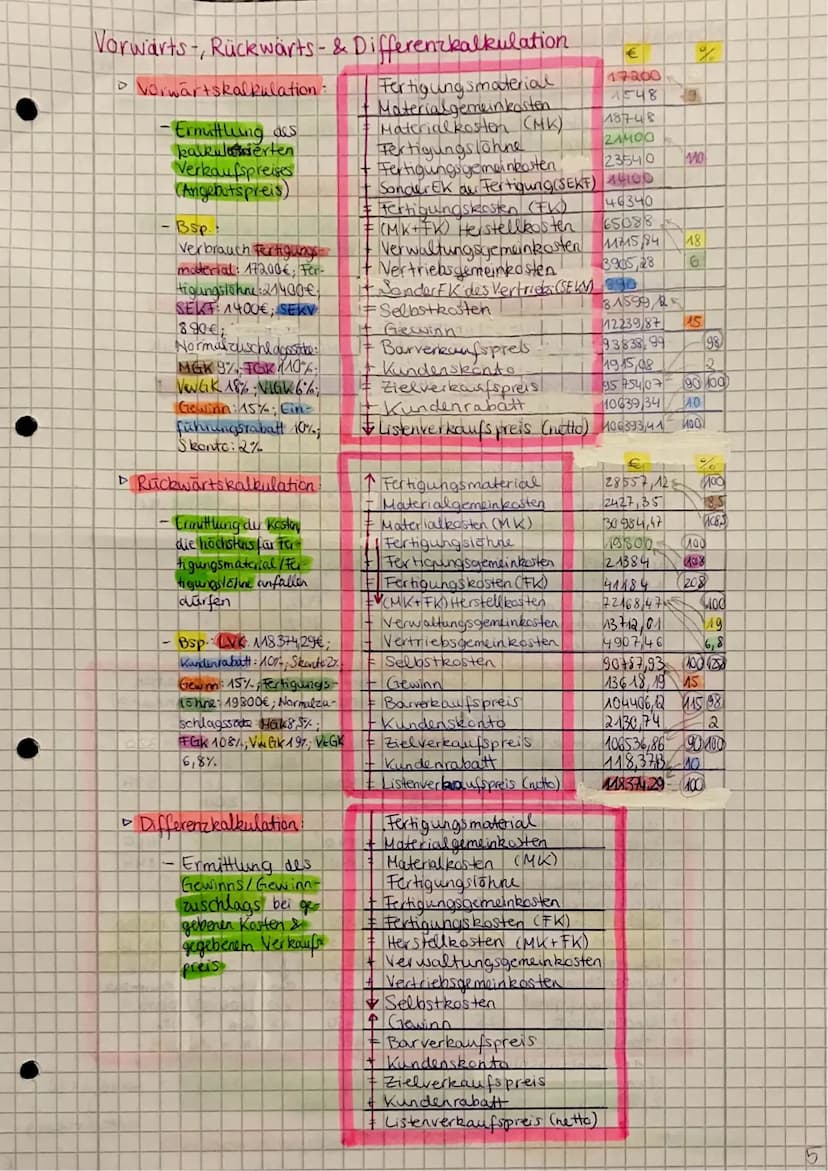 Vorwärts-, Rückwärts- & Differenzkalkulation
€ %
▷ Vorwärtskalkulation:
– Ermittlung des
kalkulierten
Verkaufspreises
(Angebotspreis)
– Bsp.:
Verbrauch Fertigungs-
material: 17200€; Fer-
tigungslöhne: 21400€;
SEKF: 1400€; SEKV
890€;
Normalzuschlagssätze:
MGK 9%; FGK 110%;
VwGK 18%; VtGK 6%;
Gewinn: 15%; Ein-
führungsrabatt 10%;
Skonto: 2%
Fertigungsmaterial 17200
+ Materialgemeinkosten 1548 9
= Materialkosten (MK) 18748
Fertigungslöhne 21400
+ Fertigungsgemeinkosten 23540 110
+ SonderEK der Fertigung (SEKF) 1400
= Fertigungskosten (FK) 46340
= (MK+FK) Herstellkosten 65088
+ Verwaltungsgemeinkosten 11715,84 18
+ Vertriebsgemeinkosten 3905,28 6
+ SonderEK des Vertriebs (SEKV) 890
= Selbstkosten 81599,12
+ Gewinn 12239,87 15
= Barverkaufspreis 93838,99 98
+ Kundenskonto 1915,08 2
= Zielverkaufspreis 95754,07 90 100
+ Kundenrabatt 10639,34 10
= Listenverkaufspreis (netto) 106393,41 100
€ %
▷ Rückwärtskalkulation:
– Ermittlung der Kosten,
die höchstens für Fer-
tigungsmaterial/Fer-
tigungslöhne anfallen
dürfen
– Bsp.: LVK: 118.374,29€;
Kundenrabatt: 10%; Skonto 2%
Gewinn: 15%; Fertigungs-
löhne: 19800€; Normalzu-
schlagssätze MGK 8,5%;
FGK 108%; VwGK 19%; VtGK
6,8%.
Fertigungsmaterial 28557,12 100
– Materialgemeinkosten 2427,35 8,5
= Materialkosten (MK) 30984,47 108,5
Fertigungslöhne 19800 100
+ Fertigungsgemeinkosten 21384 108
= Fertigungskosten (FK) 41184 208
= (MK+FK) Herstellkosten 72168,47 100
– Verwaltungsgemeinkosten 13712,01 19
– Vertriebsgemeinkosten 4907,46 6,8
= Selbstkosten 90787,93 100
– Gewinn 13618,19 15
= Barverkaufspreis 104406,12 115 98
– Kundenskonto 2130,74 2
= Zielverkaufspreis 106536,86 90 100
– Kundenrabatt 10
= Listenverkaufspreis (netto) 118374,29 100
▷ Differenzkalkulation:
– Ermittlung des
Gewinns/Gewinn-
zuschlags bei ge-
gebenen Kosten &
gegebenem Verkaufs
preis
Fertigungsmaterial
+ Materialgemeinkosten
= Materialkosten (MK)
Fertigungslöhne
+ Fertigungsgemeinkosten
= Fertigungskosten (FK)
= Herstellkosten (MK+FK)
+ Verwaltungsgemeinkosten
+ Vertriebsgemeinkosten
Selbstkosten
Gewinn
= Barverkaufspreis
+ Kundenskonto
= Zielverkaufspreis
+ Kundenrabatt
= Listenverkaufspreis (netto)
5